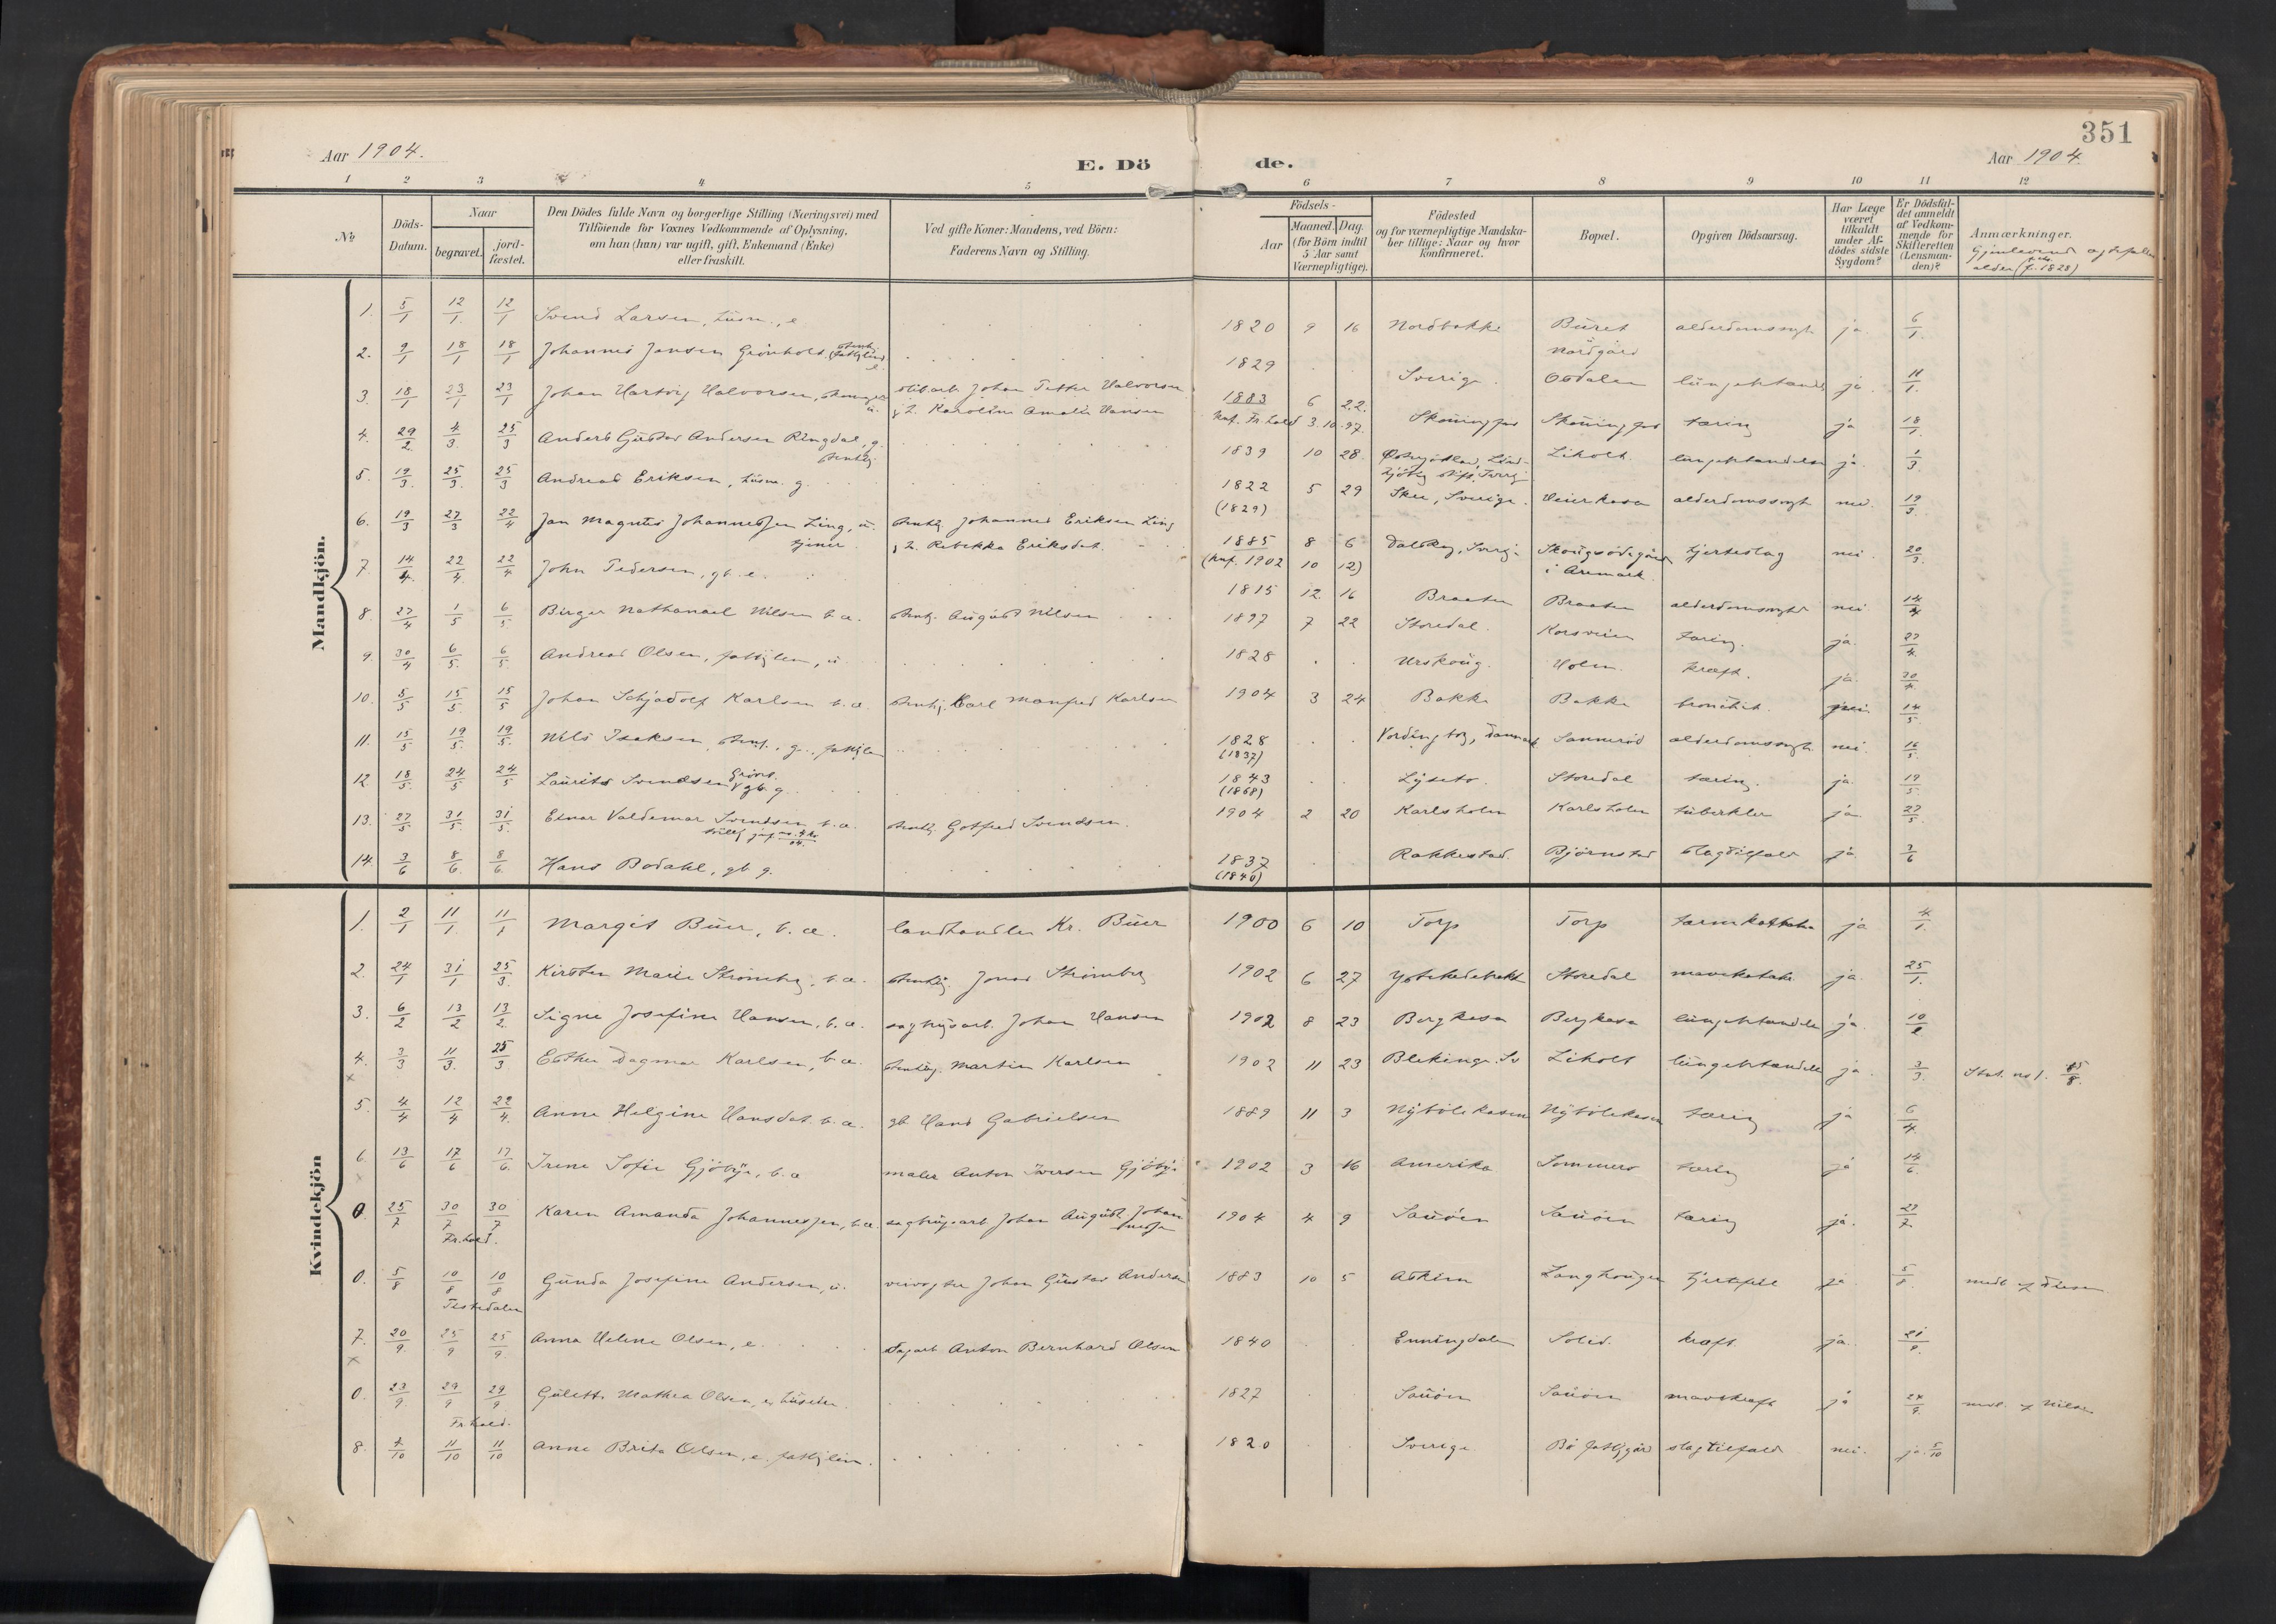 351
Aar 1904.
E. Dö de.
Aar 1904.
1 2 3 4 5 6 7 8 9 10 11 12
No
Döds-Datum.
Naar
begravet. jord-fæstet.
Den Dödes fulde Navn og borgerlige Stilling (Næringsvei) med
Tilföiende for Voxnes Vedkommende af Oplysning,
om han (hun) var ugift, gift, Enkemand (Enke)
eller fraskilt.
Ved gifte Koner: Mandens, ved Börn:
Faderens Navn og Stilling.
Födsels-
Aar
Maaned. Dag.
(for Börn indtil
5 Aar samt
Værnepligtige).
Födested
og for værnepligtige Mandska-
ber tillige: Naar og hvor
konfirmeret.
Bopæl.
Opgiven Dödsaarsag.
Har Læge
været
tilkaldt
under Af-
dödes sidste
Sygdom?
Er Dödsfal-
det anmeldt
af Vedkom-
mende for
Skifteretten
(Lensman-
den)?
Anmærkninger.
alder (f. 1828)
Mandkjön.
1. 5/1 12/1 12/1 Svend Larsen, husm., e. 1820 9 16 Nordbakke Buret alderdomssvgh. ja 6/1
2. 9/1 18/1 18/1 Johannes Jansen Grönholt (fattiglem) e. 1829 Sverige Nordgård Osdalen lungebetænd. ja 11/1
3. 18/1 23/1 23/1 Johan Hartvig Halvorsen, u. slibarb. Johan Petter Halvorsen
j H. Karoline Amalie Hansen 1883 6 22. Skoningfos Skoningfos tæring ja 18/1
Konf. Fr.hald 3.10.97.
4. 29/2 4/3 25/3 Anders Gustav Andersen Ringdal, g. 1839 10 28. Liholt lungebetændelse ja 1/3
5. 19/3 25/3 25/3 Andreas Eriksen, husm. g. 1822 5 29 Skee, Sverige. Veierkasa alderdomssvgh nei. 19/3
(1829)
6. 19/3 27/3 22/4 Jan Magnus Johannessen Ling, u. tjener Johannes Eriksen Ling
j H. Rebekka Eriksdat. 1885 8 6 Dalskog, Sverige i Aremark hjerteslag nei 20/3
(Konf. 1902 10 12)
7. 14/4 22/4 22/4 John Pedersen, gb. e. 1815 12. 16 Braaten Braaten alderdomssvgh nei 14/4
8. 27/4 1/5 6/5 Birger Nathanael Nilsen b. a. August Nilsen 1897 7 22 Storedal. Korsveien tæring. ja. 27/4
9. 30/4 6/5 6/5 Andreas Olsen, fattiglem, u 1828 Urskoug. Holm. kræft. ja. 30/4
10. 5/5 15/5 15/5 Johan Schjadolf Karlsen b. a. Carl Manfred Karlsen 1904 3 24 Bakke Bakke bronchit. nei 14/5
11. 15/5 19/5 19/5 Nils Isaksen, g., fattiglem 1828 Vordingborg, Danmark Sannerød alderdomssvgh. nei. 16/5
(1837)
12. 18/5 24/5 24/5 Laurits Svendsen gb. g. 1843 Lyseto. Storedal tæring. ja. 19/5
(1868)
13. 27/5 31/5 31/5 Einar Valdemar Svendsen b. a. Gotfred Svendsen. 1904 2 20 Karlsholm Karlsholm tuberkler ja 27/5
14. 3/6 8/6 8/6 Hans Bodahl, gb. g. 1837 Rakkestad. Björnstad slagtilfald ja 3/6
(1840)
Kvindekjön
1. 2/1 11/1 11/1 Margit Buer, b. a. landhandler Kr. Buer 1900 6 10 Torp Torp tarmkatarh ja 4/1
2. 24/1 31/1 25/3 Kirsten Marie Strömberg, b. a. Jonas Strömberg 1902 6 27 Storedal mavekatarh ja 25/1
3. 6/2 13/2 13/2 Signe Josefine Hansen, b. a. sagbrugsarb. Johan Hansen 1902 8 23 Bergkasa Bergkasa lungebetændelse ja. 10/2
4. 3/3 11/3 25/3 Esther Dagmar Karlsen, b. a. Martin Karlsen 1902 11 23 Blekinge. Sv Liholt lungebetændelse ja 3/3 Stat. no 1.
5. 4/4 12/4 22/4 Anne Helgine Hansdat. b. a. gb. Hans Gabrielsen 1889 11 3 Nybölekasen Nybölekasen tæring ja 6/4
6. 13/6 17/6 17/6 Irene Sofie Gjöbye, b. a maler Anton Iversen Gjöbye 1902 3 16 Amerika Sommero tæring ja 14/6
0. 25/7 30/7 30/7 Karen Amanda Johannessen, b. a. sagbrugsarb. Johan August Johannessen 1904 4 9 Sauöen Sauöen tæring ja. 27/7
Fr.hald.
0. 5/8 10/8 10/8 Gunda Josefine Andersen, u. veivogter Johan Gustav Andersen 1883 10 5 Askim Langhougen hjertefeil ja 5/8
Tistedalen
7. 20/9 25/9 25/9 Anna Helene Olsen, e. Anton Bernhard Olsen 1840 Enningdalen Solid. kræft. ja. 21/9
0. 23/9 29/9 29/9 Guletta Mathea Olsen, e. 1827 Sauöen Sauöen mavekræft ja 24/9
Fr.hald.
8. 4/10 11/10 11/10 Anne Brita Olsen, e. fattiglem. 1820 Sverige Bö fattiggård slagtilfald nei. ja. 5/10